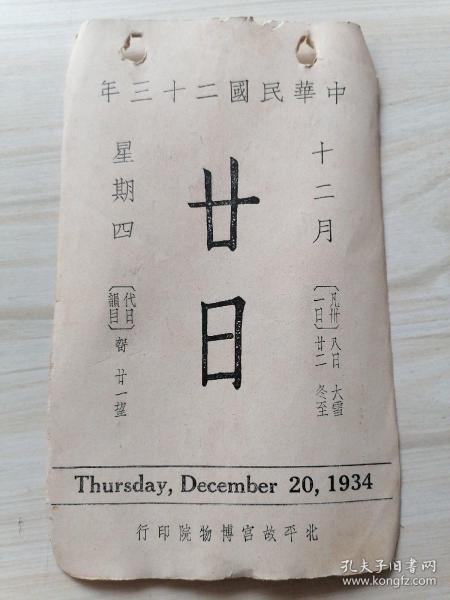 中華民國二十三年
十二月
廿日
星期四
〔凡卅一日〕
八日 大雪
廿二 冬至
〔代日韻目〕
號 廿一望
Thursday, December 20, 1934
北平故宮博物院印行
孔夫子旧书网
www.kongfz.com